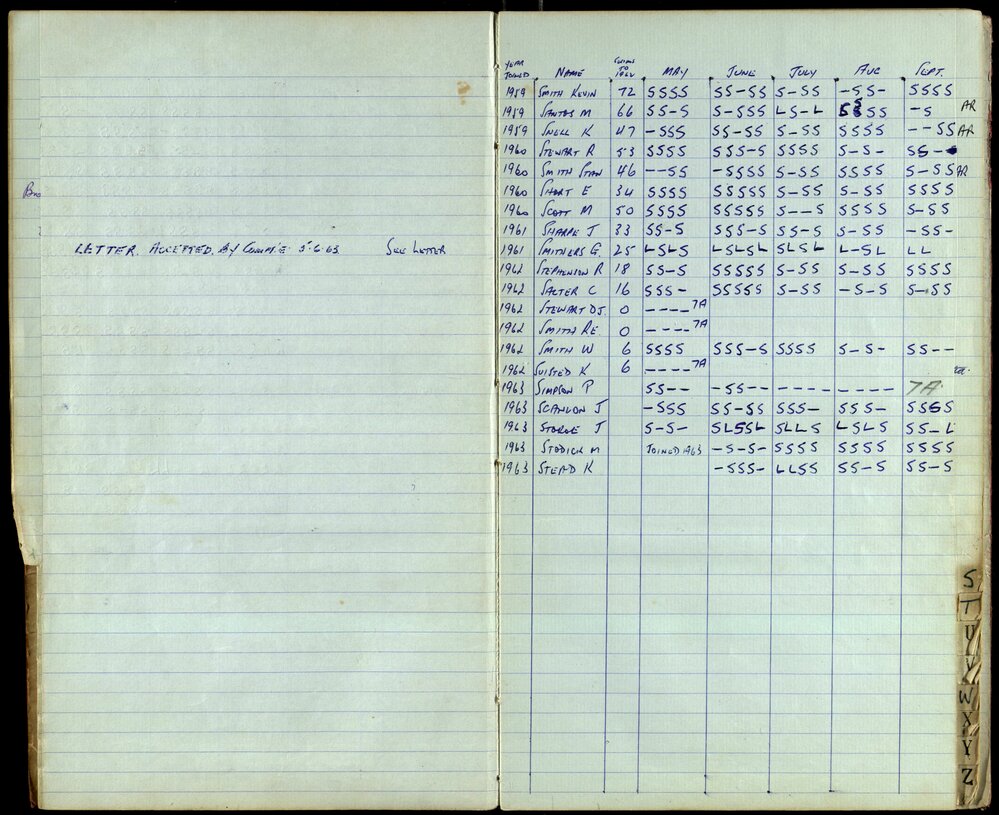 LETTER. ACCEPTED. By COMM.E. 5.6.63. SEE LETTER
YEAR JOINED NAME TO 1962 MAY JUNE JULY AUG SEPT.
1959 SMITH KEVIN 72 SSSS SS-SS S-SS -SS- SSSS
1959 SANTOS M 66 SS-S S-SSS L S-L SSSS -S AR
1959 SNELL K 47 -SSS SS-SS S-SS SSSS --SS AR
1960 STEWART R 53 SSSS SSS-S SSSS S-S- SS--
1960 SMITH STAN 46 --SS -SSSS S-SS SSSS S-SS AR
1960 SHORT E 34 SSSS SSSSS S-SS S-SS SSSS
1960 SCOTT M 50 SSSS SSSSS S--S SSSS S-SS
1961 SHARPE J 33 SS-S SSSSS S-SS S-SS -SS-
1961 SMITHERS G. 25 LSLS LSLSL SLSL L-SL LL
1962 STEPHENSON R 18 SS-S SSSSS S-SS S-SS SSSS
1962 SALTER C 16 SSS- SSSSS S-SS -S-S S-SS
1962 STEWART DJ. 0 ---- 7A
1962 SMITH RE. 0 ---- 7A
1962 SMITH W 6 SSSS SSS-S SSSS S-S- SS--
1962 SUISTED K 6 ---- 7A
1963 SIMPSON P SS-- -SS-- ---- ---- 7A
1963 SCANLON J -SSS SS-SS SSS- SSS- SSSS
1963 J S-S- SLSSL SLLS LSLS SS-L
1963 STODICK M JOINED 1963 -S-S- SSSS SSSS SSSS
1963 STEAD K -SSS- LLSS SS-S SS-S
S
T
U
V
W
X
Y
Z